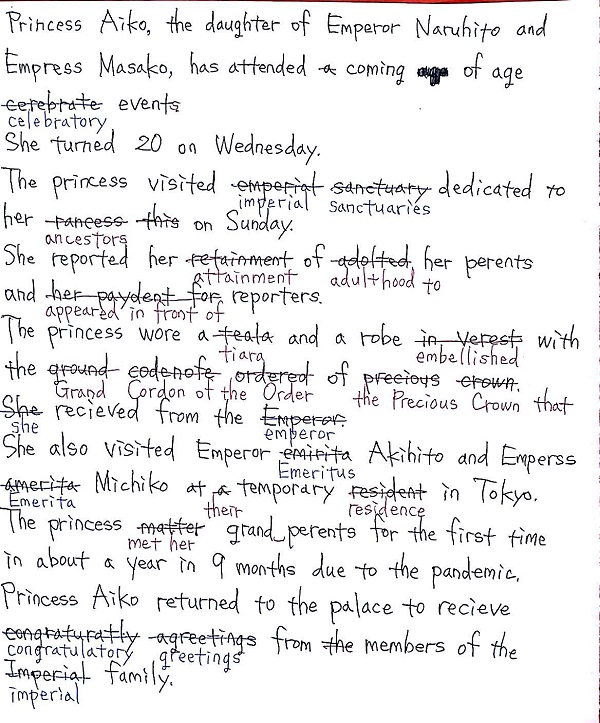 Princess Aiko, the daughter of Emperor Naruhito and
Empress Masako, has attended a coming of age
cerebrate events
celebratory
She turned 20 on Wednesday.
The princess visited emperial sanctuary dedicated to
imperial sanctuaries
her rancess this on Sunday.
ancestors
She reported her retainment of adolted her perents
attainment adulthood to
and her paydent for reporters.
appeared in front of
The princess wore a teata and a robe in verest with
tiara embellished
the ground codenofe ordered of precious crown.
Grand Cordon of the Order the Precious Crown that
She recieved from the Emperor.
she emperor
She also visited Emperor emirita Akihito and Emperss
Emeritus
amerita Michiko at a temporary resident in Tokyo.
Emerita their residence
The princess matter grand perents for the first time
met her
in about a year in 9 months due to the pandemic.
Princess Aiko returned to the palace to recieve
congraturatly agreetings from the members of the
congratulatory greetings
Imperial family.
imperial